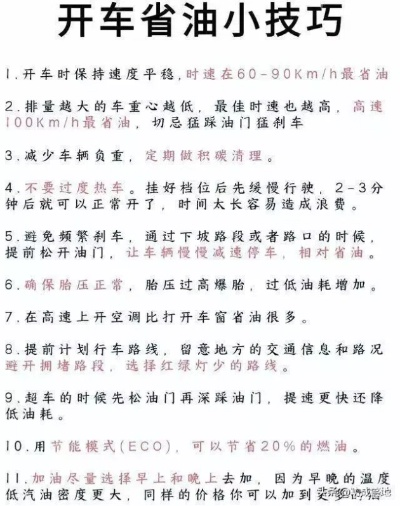 开车省油小技巧
1.开车时保持速度平稳,时速在60-90Km/h最省油
2.排量越大的车重心越低，最佳时速也越高，高速
100Km/h最省油，切忌猛踩油门猛刹车
3.减少车辆负重，定期做积碳清理。
4.不要过度热车。挂好档位后先缓慢行驶，2-3分
钟后就可以正常开了，时间太长容易造成浪费。
5.避免频繁刹车，通过下坡路段或者路口的时候，
提前松开油门，让车辆慢慢减速停车，相对省油。
6.确保胎压正常，胎压过高爆胎，过低油耗增加。
7.在高速上开空调比打开车窗省油很多。
8.提前计划行车路线，留意地方的交通信息和路况
避开拥堵路段，选择红绿灯少的路线。
9.超车的时候先松油门再深踩油门，提速更快还降
低油耗。
10.用节能模式(ECO)，可以节省20%的燃油。
11.加油尽量选择早上和晚上去加，因为早晚的温度
低汽油密度更大，同样的价格你可以加到更多的油